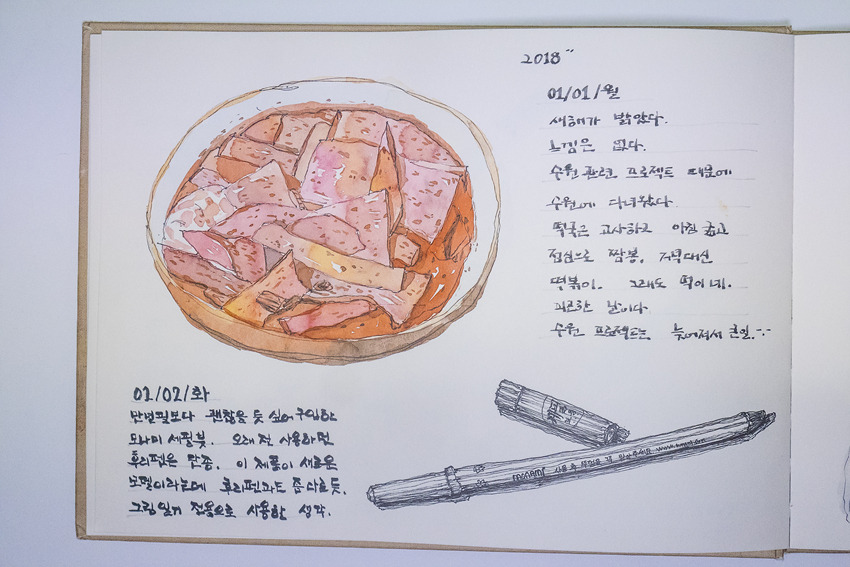 2018"
01/01/월
새해가 밝았다.
느낌은 없다.
수원 관련 프로젝트 때문에
수원에 다녀왔다.
떡국은 고사하고 아침 굶고
점심으로 짬뽕. 저녁대신
떡볶이. 그래도 떡이네.
피곤한 날이다
수원 프로젝트는 늦어져서 큰일.
01/02/화
만년필보다 괜찮을 듯 싶어 구입한
모나미 세필붓. 오래 전 사용하던
후리펜은 단종. 이 제품이 새로운
모델이라는데 후리펜과는 좀 다른 듯.
그림일기 전용으로 사용할 생각.
monami 사용 후 뚜껑을 꼭 닫아주세요. www.monami.com